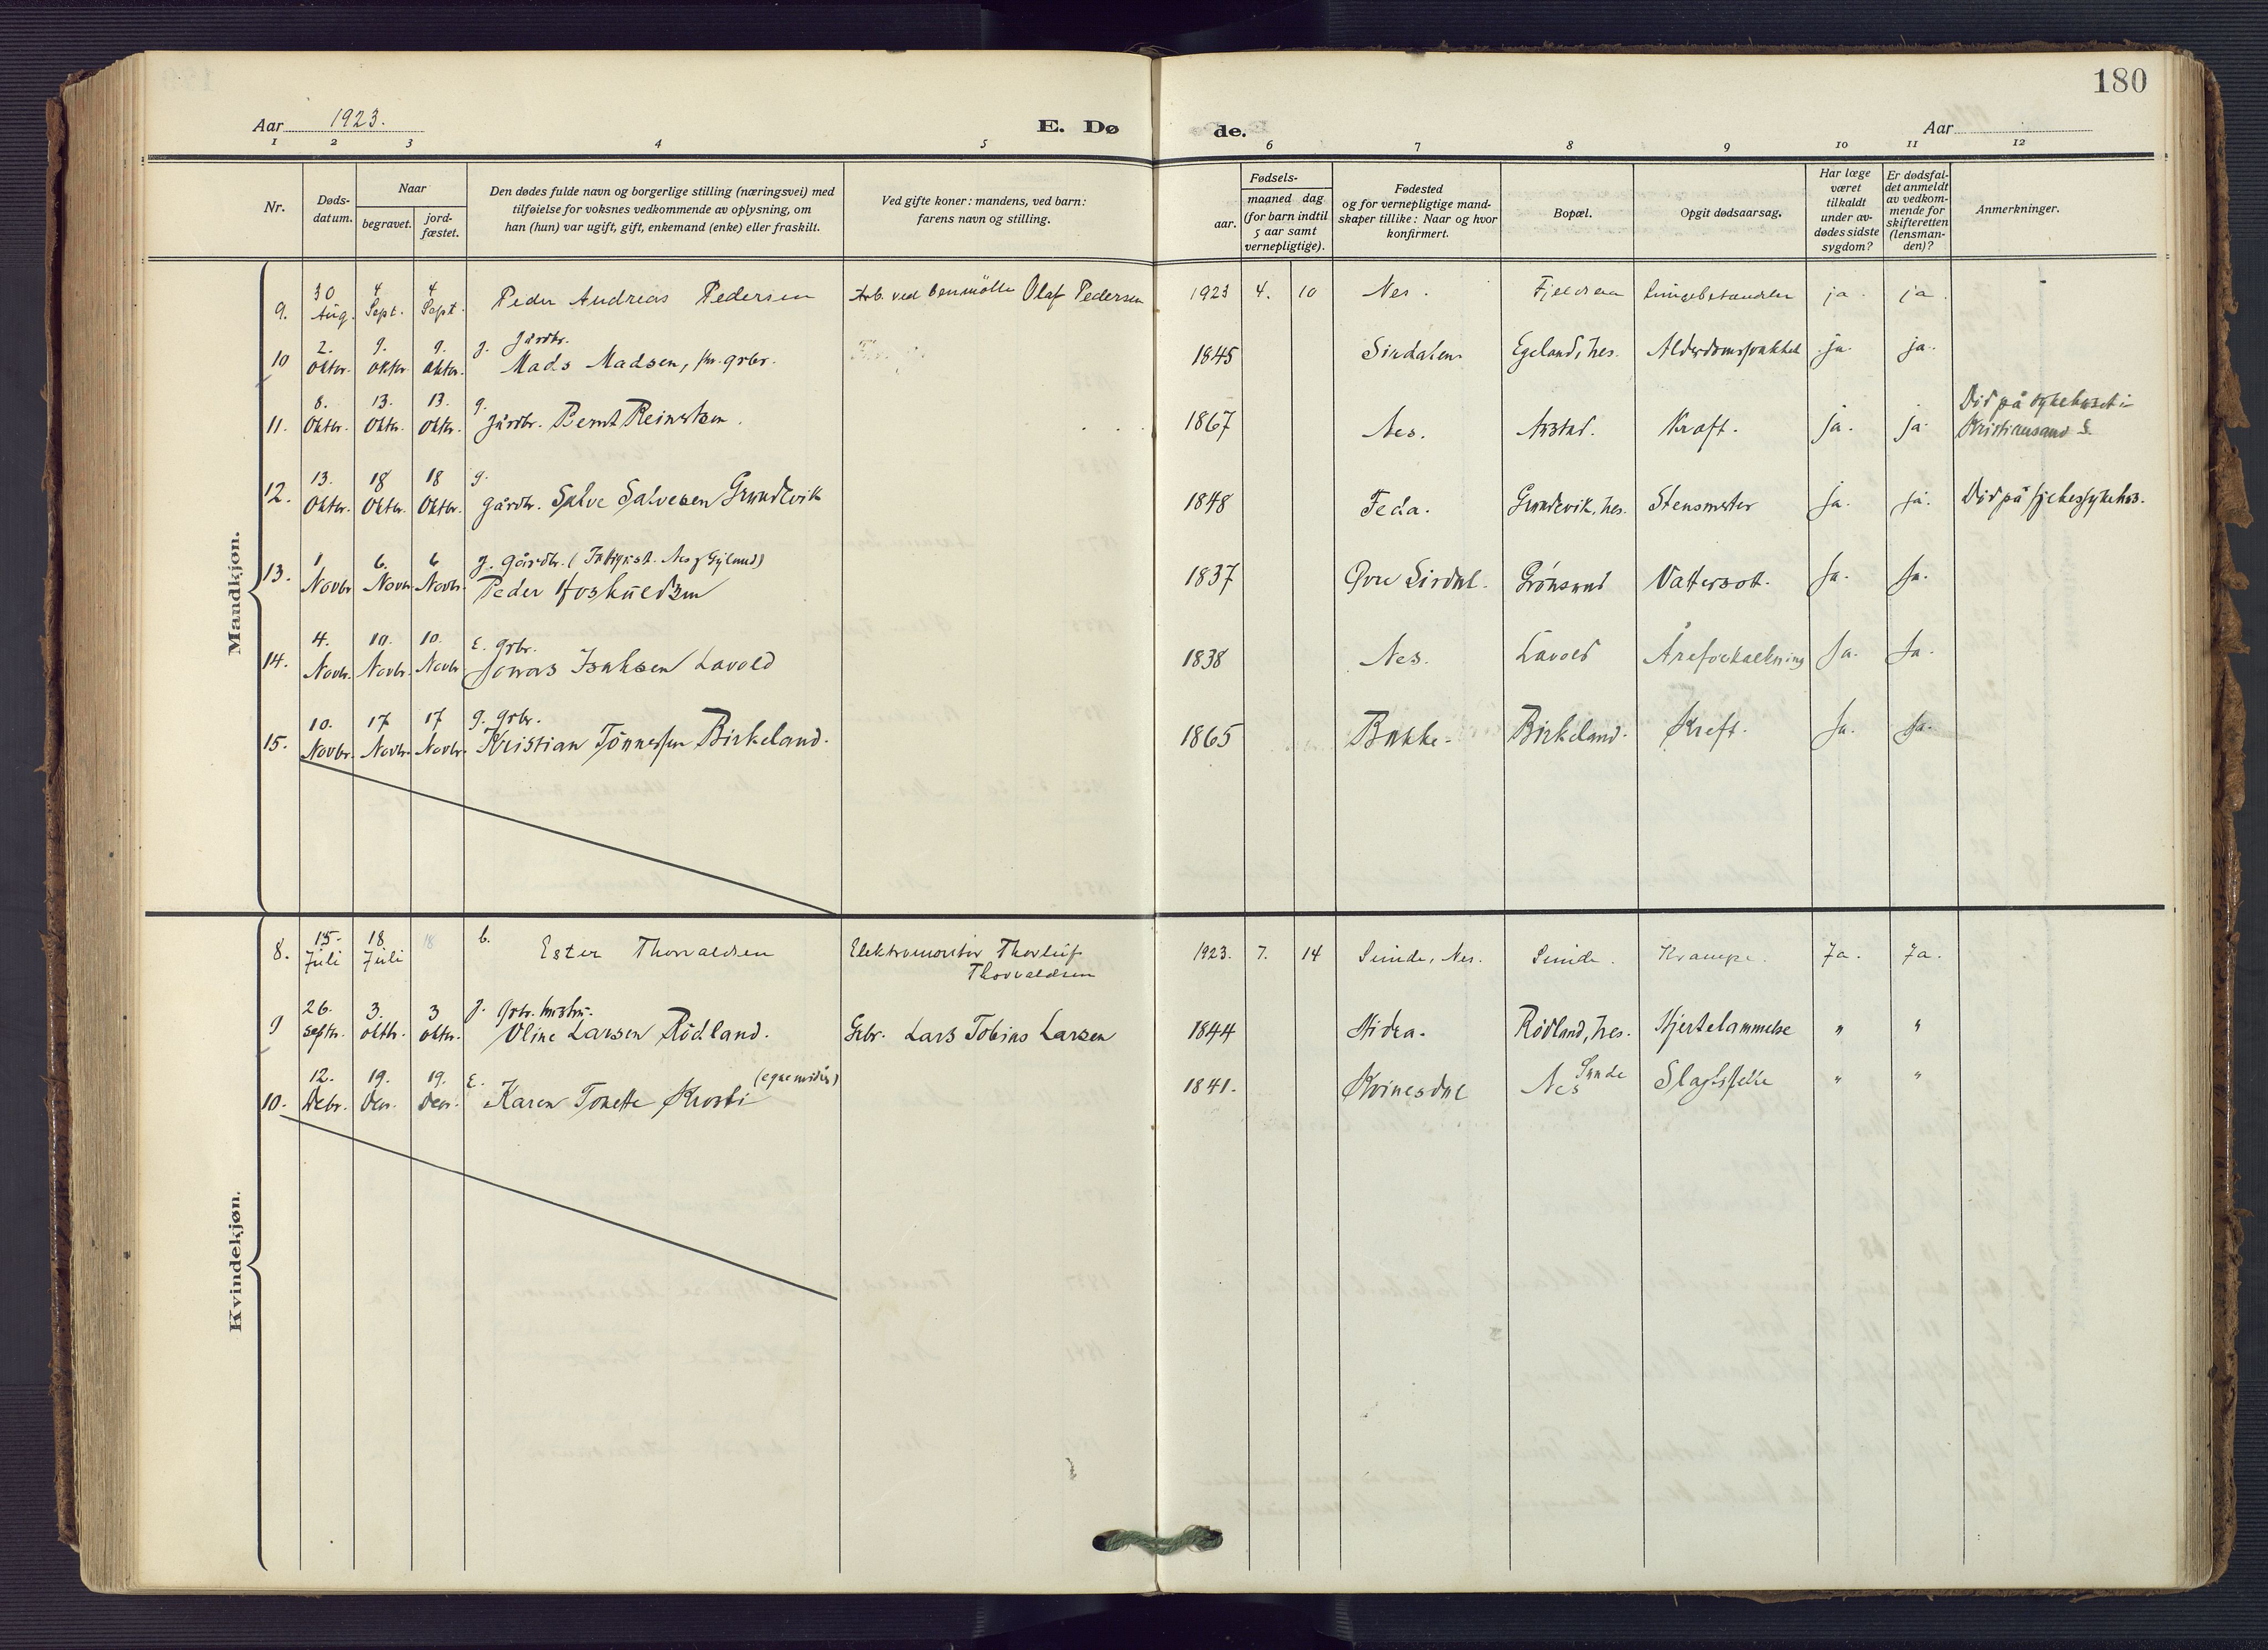 180
Aar 1923.
E. Dø de.
Aar
1 2 3 4 5 6 7 8 9 10 11 12
Nr.
Døds-
datum.
Naar
begravet.
jord-
fæstet.
Den dødes fulde navn og borgerlige stilling (næringsvei) med
tilføielse for voksnes vedkommende av oplysning, om
han (hun) var ugift, gift, enkemand (enke) eller fraskilt.
Ved gifte koner: mandens, ved barn:
farens navn og stilling.
Fødsels-
aar.
maaned dag
(for barn indtil
5 aar samt
vernepligtige).
Fødested
og for vernepligtige mand-
skaper tillike: Naar og hvor
konfirmert.
Bopæl.
Opgit dødsaarsag.
Har læge
været
tilkaldt
under av-
dødes sidste
sygdom?
Er dødsfal-
det anmeldt
av vedkom-
mende for
skifteretten
(lensman-
den)?
Anmerkninger.
Mandkjøn.
9. 30 Aug. 4 Sept. 4 Sept. Peder Andreas Pedersen Arb. ved Olaf Pedersen 1923 4. 10 Nes. ja. ja.
10 2. Oktbr. 9. Oktbr. 9. Oktbr. g. Gårdbr.
Mads Madsen, grbr. 1845 Sirdalen. Egeland, Nes. ja. ja.
11. 8. Oktbr. 13. Oktbr. 13. Oktbr. g.
gårdbr. Bernt Reinertsen. 1867 Nes. Årstad. Kræft. ja. ja. Död på sykehuset i
Kristiansand S.
12. 13. Oktbr. 18 Oktbr. 18 Oktbr. g.
gårdbr. Salve Salvesen Grundevik 1848 Feda. Grundevik, Nes. ja. ja. Död på
13. 1 Novbr. 6. Novbr. 6 Novbr. g. Gårdbr.
Peder 1837 Øvre Sirdal. Grönsund Vattersott. Ja. Ja.
14. 4. Novbr. 10. Novbr. 10. Novbr. E. grbr.
Jonas Isaksen Lavold 1838 Nes. Lavold Åreforkalkning Ja. Ja.
15. 10. Novbr. 17 Novbr. 17 Novbr. g. grbr.
Kristian Tönnessen Birkeland. 1865 Bakke. Birkeland. Kreft. Ja. Ja.
Kvindekjøn.
8. 15. Juli 18 Juli 18 b. Ester Thorvaldsen Elektromontör Thorleif
Thorvaldsen 1923. 7. 14 Sunde, Nes. Sunde. Krampe. Ja. Ja.
9 26. Septbr. 3. Oktbr. 3 Oktbr. g. Grbr.
Oline Larsen Rödland. Grbr. Lars Tobias Larsen 1844 Hidra. Rödland, Nes. Hjertelammelse " "
10. 12. Debr. 19. Decr. 19. Decr. E.
Karen Tonette 1841. Kvinesdal Sunde
Nes " "